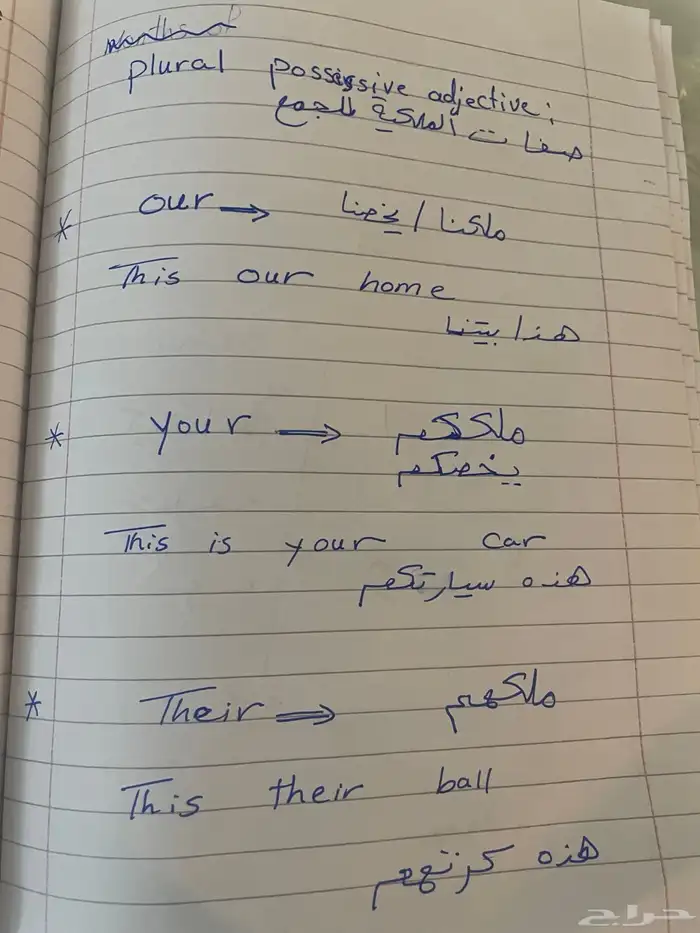 plural possessive adjective;
صفات الملكية للجمع
* our → ملكنا / يخصنا
This our home
هذا بيتنا
* your ⇒ ملككم
يخصكم
This is your car
هذه سيارتكم
* Their ⇒ ملكهم
This their ball
هذه كرتهم
حراج